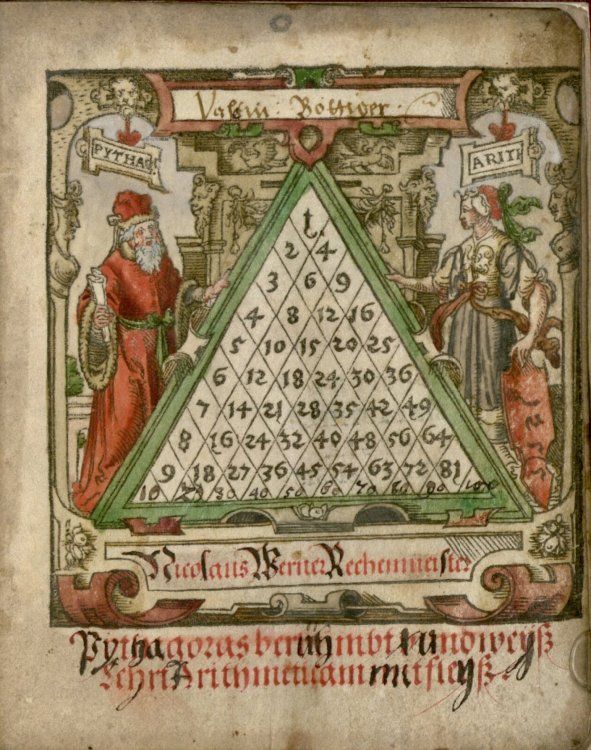 PYTHA
ARITH
1
2 4
3 6 9
4 8 12 16
5 10 15 20 25
6 12 18 24 30 36
7 14 21 28 35 42 49
8 16 24 32 40 48 56 64
9 18 27 36 45 54 63 72 81
10 20 30 40 50 60 70 80 90 100
Nicolaus Werner Rechenmeister
Pythagoras berühmbt vnd weyß
Lehrt Arithmeticam mit fleyß